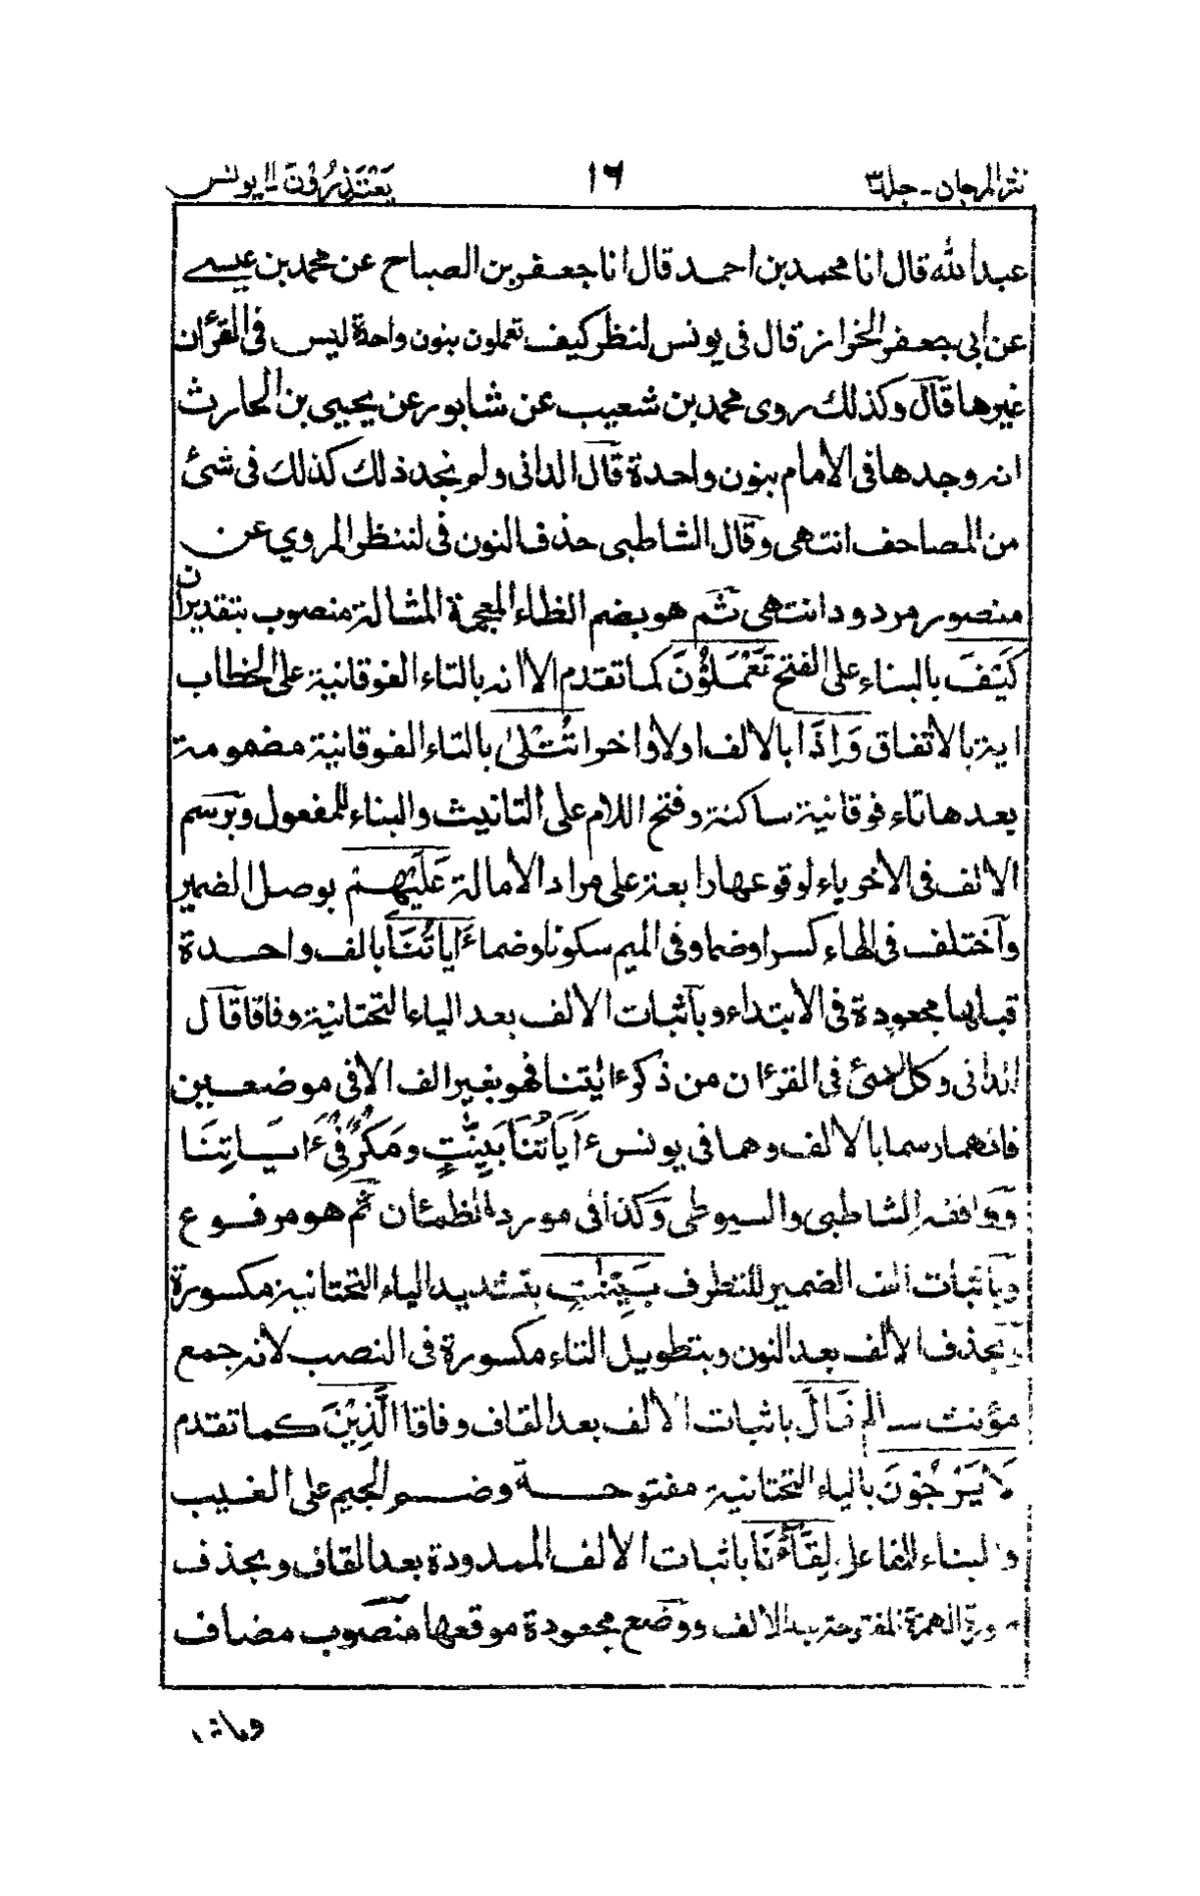 نثر المرجان - جلد ٣ ١٦ يَعْتَذِرُوْنَ ١١ يونس
عبد الله قال انا محمد بن احمد قال انا جعفر بن الصباح عن محمد بن عيسے
عن ابي جعفر الخوازن قال فى يونس لنظر كيف تعملون بنون واحدة ليس فى القرءان
غيرها قآل وكذلك روى محمد بن شعيب عن شابور عن يحيى بن الحارث
انه وجدها فى الامام بنون واحدة قآل الدانى ولم نجد ذلك كذلك فى شئ
من المصاحف انتهى وقآل الشاطبى حذف النون فى لننظر المروي عن
منصور مردود انتهى ثم هو بضم الظاء المعجمة المشالة منصوب بتقدير ان
كَيْفَ بالبناء على الفتح تَعْمَلُوْنَ كما تقدم الا انه بالتاء الفوقانية على الخطاب
اية بالاتفاق وَاِذَا بالالف اولا واخرا تُتْلىٰ بالتاء الفوقانية مضمومة
بعدها تاء فوقانية ساكنة وفتح اللام على التانيث والبناء للمفعول وبرسم
الالف فى الاخر ياء لوقوعها رابعة على مراد الامالة عَلَيْهِمْ بوصل الضمير
وآختلف فى الهاء كسرا وضما وفى الميم سكونا وضما ءَايَاتُنَا بالف واحدة
قبلها مجعودة فى الابتداء وبآثبات الالف بعد الياء التحتانية وفاقا قآل
الدانى وكل شئ فى القرءان من ذكر ءايٰتنا فهو بغير الف الا فى موضعين
فانهما رسما بالالف وهما فى يونس ءَايَاتُنَا بَيِّنٰتٍ ومَكْرٌ فِيْ ءَايَاتِنَا
ووافقه الشاطبى والسيوطى وكذا فى مورد الظمئان ثم هو مرفوع
وبآثبات الف الضمير للتطرف بَيِّنٰتٍ بتشديد الياء التحتانية مكسورة
وبحذف الالف بعد النون وبتطويل التاء مكسورة فى النصب لانه جمع
مؤنث سالم قَالَ باثبات الالف بعد القاف وفاقا الَّذِيْنَ كما تقدم
لَا يَرْجُوْنَ بالياء التحتانية مفتوحة وضم الجيم على الغيب
والبناء للفاعل لِقَآءَنَا باثبات الالف الممدودة بعد القاف وبحذف
صورة الهمزة المفتوحة بعد الالف ووضع مجعودة موقعها منصوب مضاف